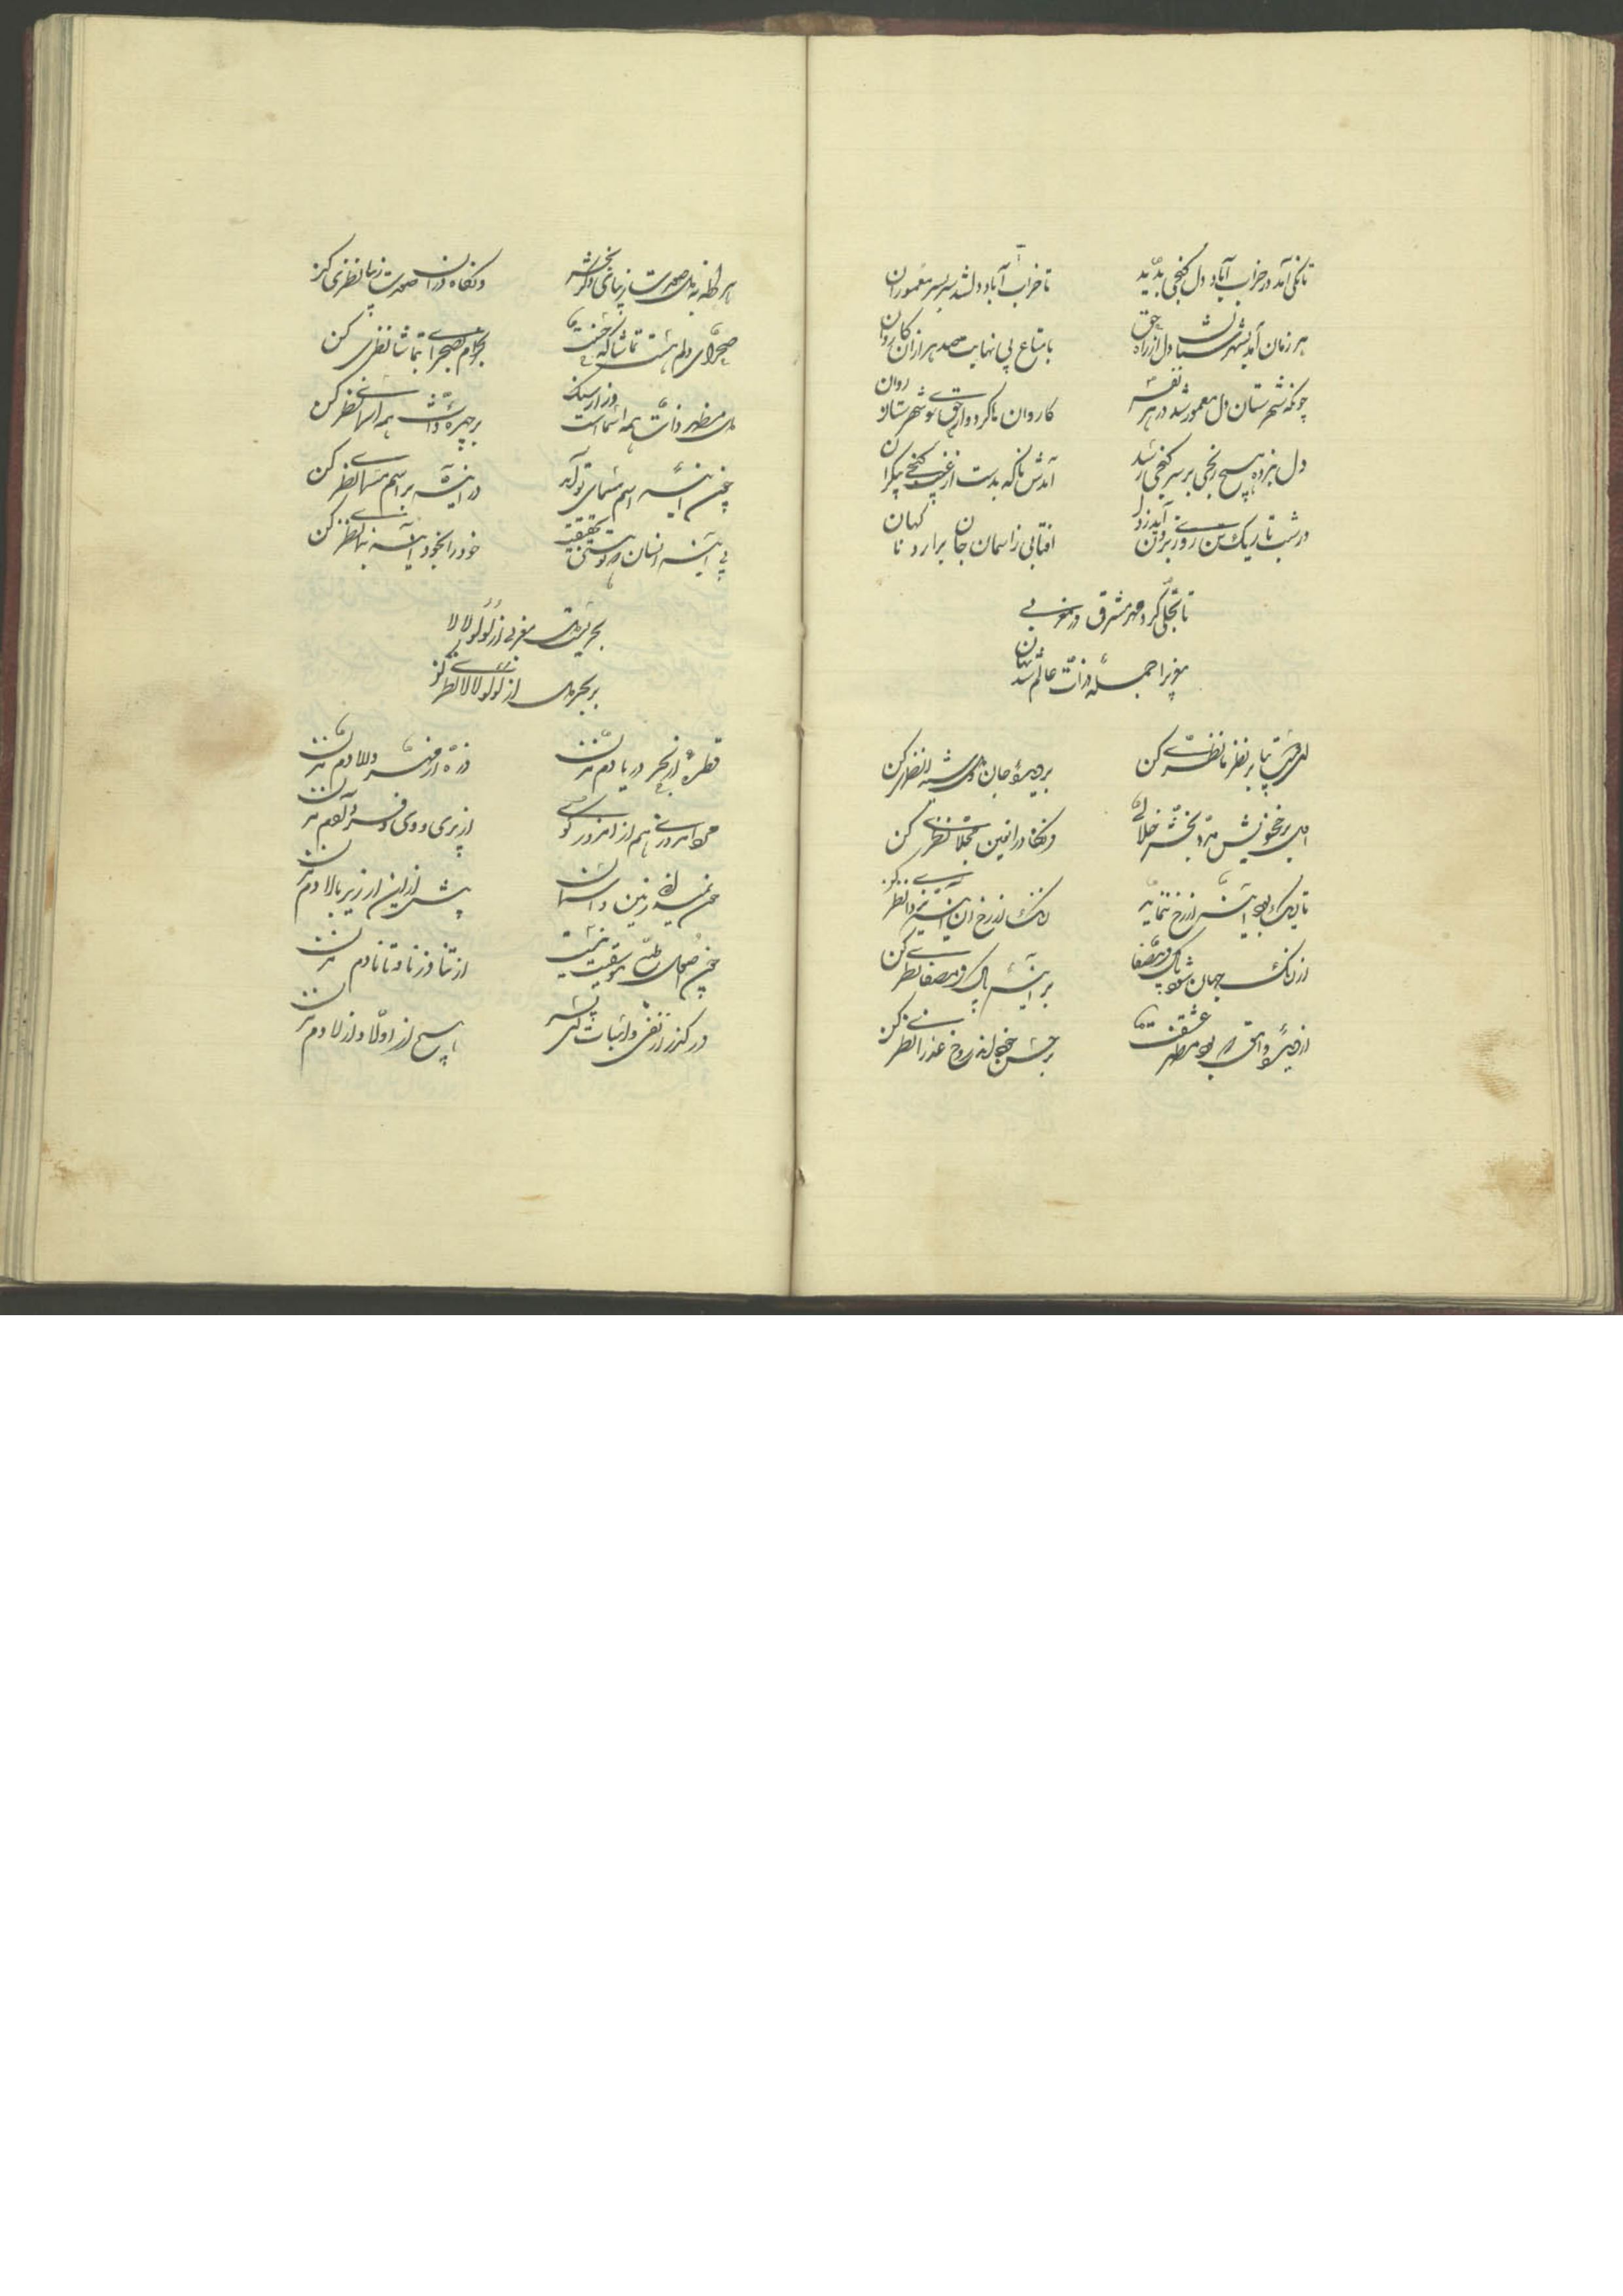 تا یکی آمد در خراب آباد دل گنجی پدید
تا خراب آباد دل شد سر بسر معمور ازان
هر زمان آمد بشهرستان دل از راه حق
با متاع بی نهایت صد هزاران کاروان
چونکه شهرستان دل معمور شد در هر نفس
کاروان با کرد و از حق سوی شهرستان روان
دل نبرده هیچ رنجی بر سر گنجی رسد
آمدش ناگه بدست از غیب گنجی بیکران
در شب تاریک تن روزی برون آید ز دل
افتابی ز اسمان جان برارد ناگهان
تا تجلی کرد مهر مشرق در مغربی
مغربی را جمله ذرات عالم شد
ای حسنت بیا بر نظر ما نظری کن
بر دیده جان و دل شیدا نظری کن
ای بر رخ خویش مرا بخش جلائی
وانگاه در این مجلا نظری کن
تا زنگ بود آینه از رخ ننماید
زنگ از رخ آن آینه بزدا نظری کن
از زنگ جهان شد چو پاک و مصفا
بر آینه پاک و مصفا نظری کن
از دیده وامق که بود مظهر عشقت
بر حسن خود اندر رخ عذرا نظری کن
هر لحظه بدل صورت زیبای دگر بخش
وانگاه در ان صورت زیبا نظری کن
صحرای دلم هست تماشاگه حسنت
بخرام بصحرا تماشا نظری کن
دل مظهر ذات همه اسماست
بر چهره ذات همه اسما نظری کن
چون آینه اسم مسمای تو آمد
در آینه بر اسم مسما نظری کن
بی آینه انسان تو بتحقیق
خود را بخود آینه بنما نظری کن
بحریست دل مغربی از لؤلؤ لالا
بر بحر دل از لؤلؤ لالا نظری کن
قطره از بحر دریا دم مزن
ذره از مهر والا دم مزن
مرد امروزی هم از امروز گوی
از پری و دی و فردا دم مزن
چون نمیدانی زمین و اسمان
بیش ازین از زیر و بالا دم مزن
چون اصول طبع موسیقیت نیست
از تنا و ز نا و تانا دم مزن
در گذر از نفی و اثبات ای پسر
هیچ از الا و از لا دم مزن